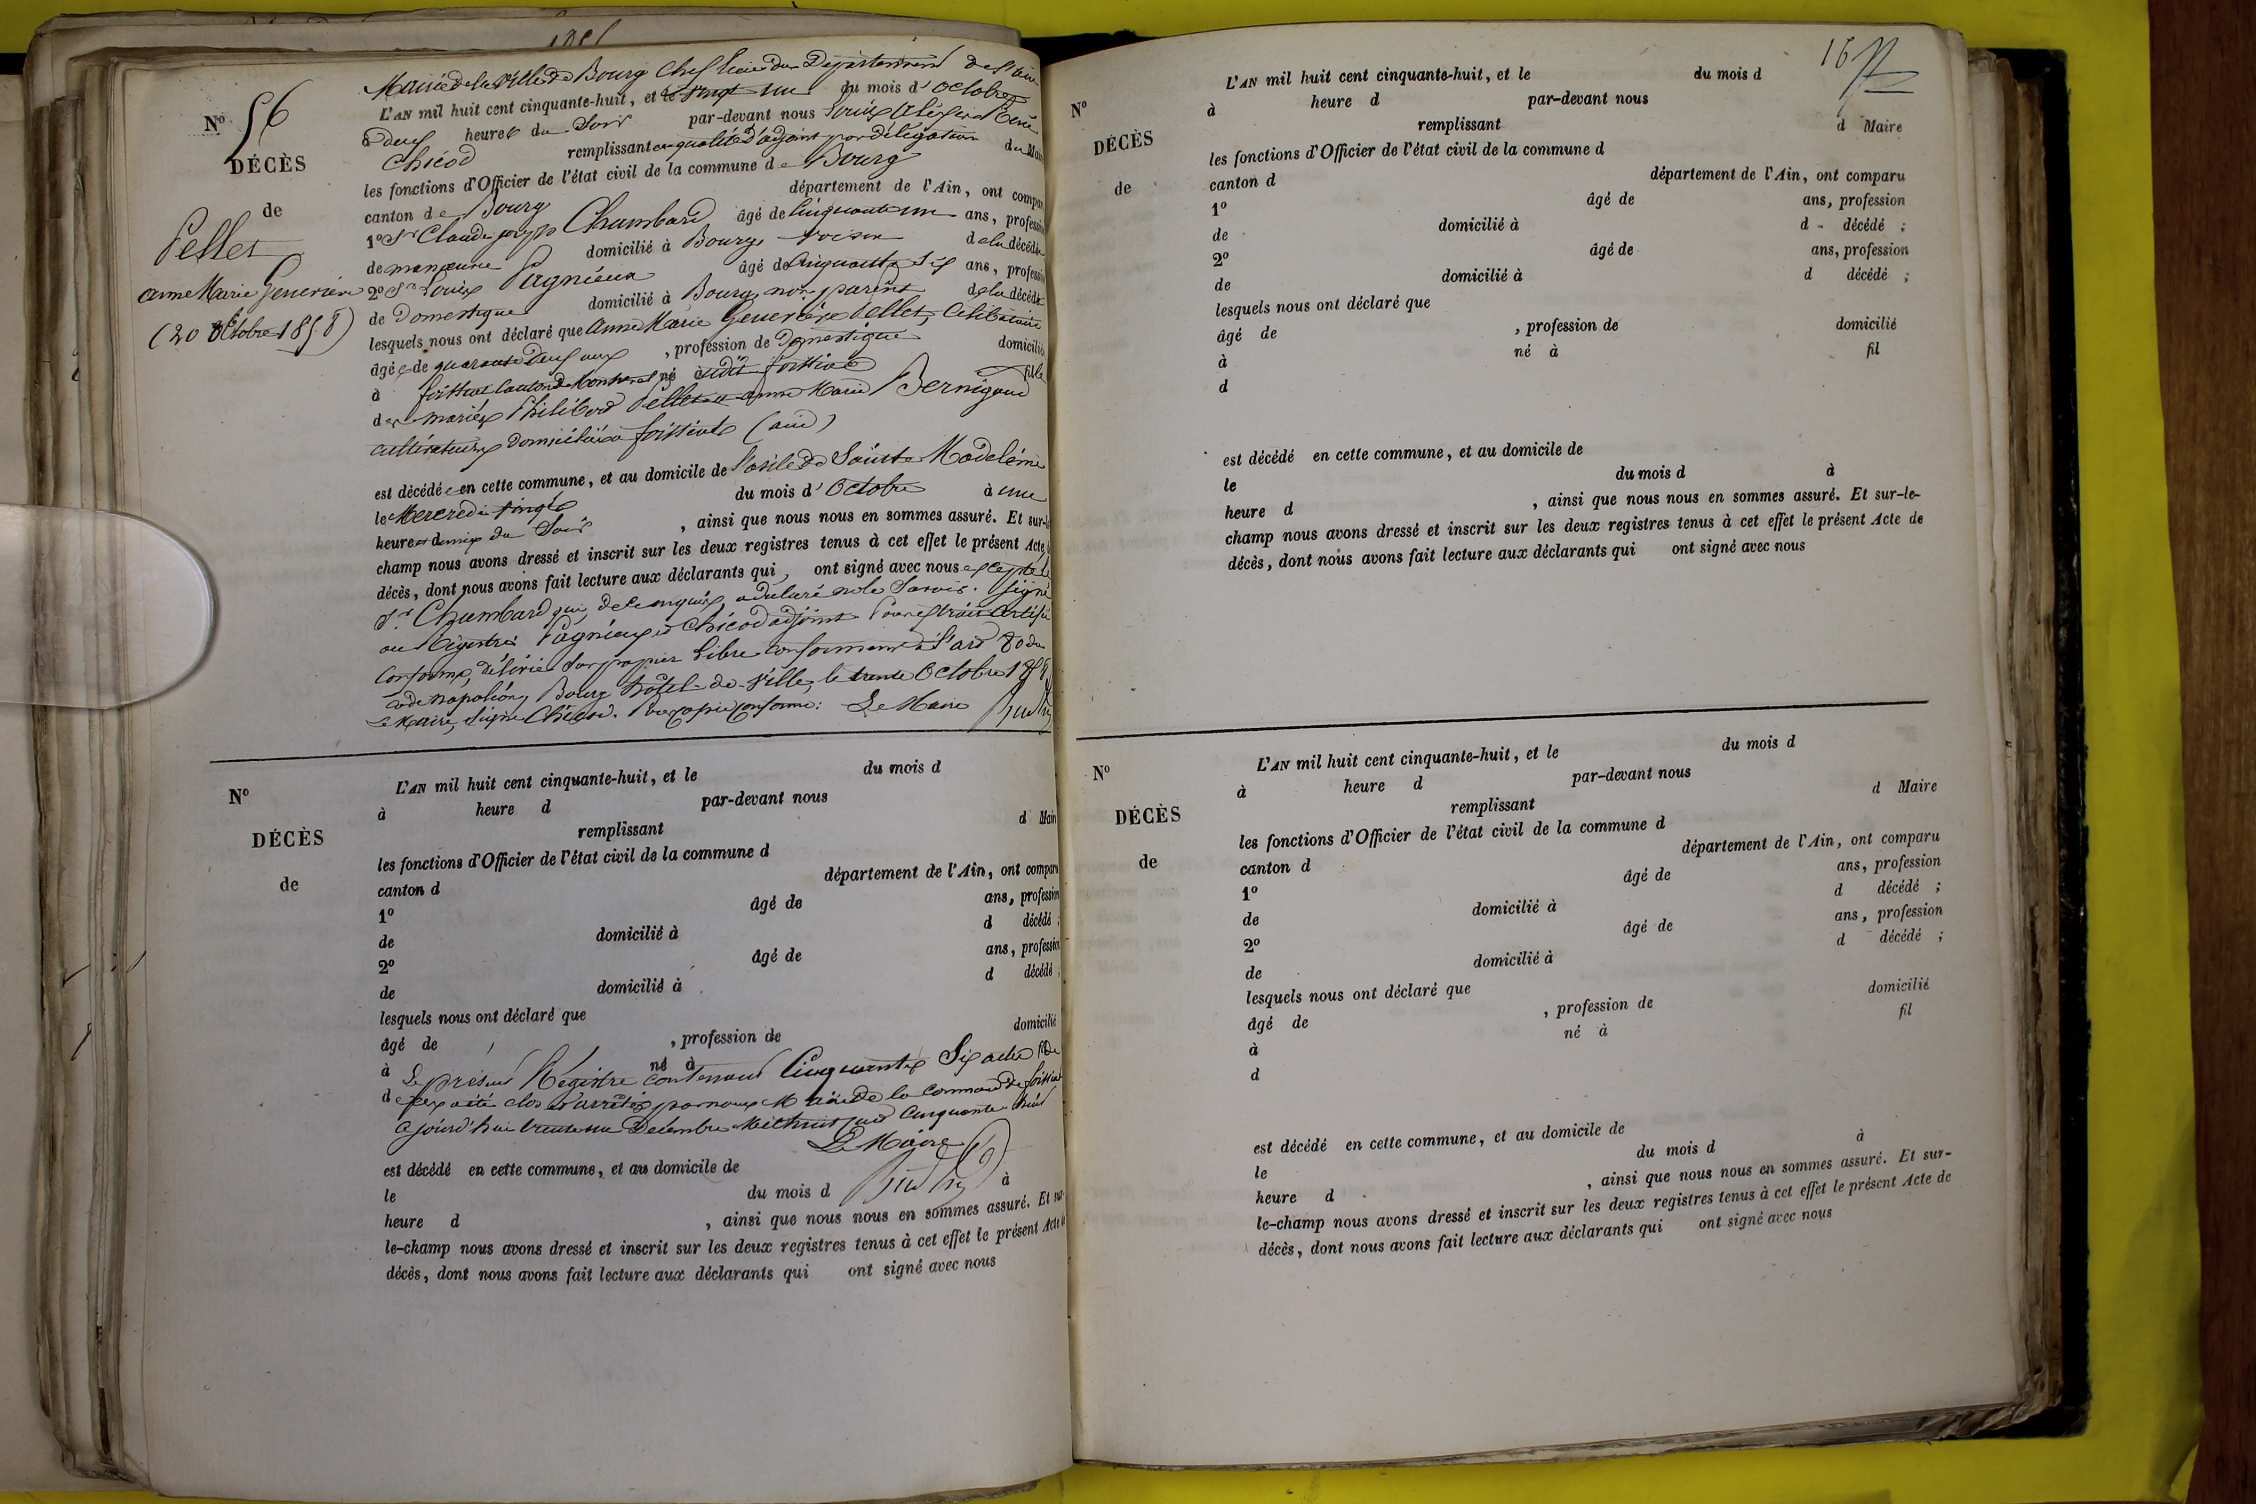 Nº 56
DÉCÈS
de
Pellet
anne Marie Genevieve
(20 Octobre 1858)
Mairie de la Ville de Bourg Chef lieu du Département de l'ain
L'AN mil huit cent cinquante-huit, et le vingt un du mois d'octobre
à deux heures du Soir par-devant nous Louis René
Chicod remplissant en qualité d'adjoint par délégation du Maire
les fonctions d'Officier de l'état civil de la commune de Bourg
canton de Bourg département de l'Ain, ont comparu
1º Sr Claude joseph Chambard âgé de Cinquante un ans, profession
de manœuvre domicilié à Bourg, voisin de la décédée
2º Sr Louis Pagnieux âgé de Cinquante six ans, profession
de Domestique domicilié à Bourg, non parent de la décédée
lesquels nous ont déclaré que Anne Marie Genevieve Pellet, Célibataire
âgée de quarante deux ans, profession de Domestique domicilié
à foissiat Canton de Montrevel né audit foissiat fille
des mariés Philibert Pellet et anne Marie Bernigaud
cultivateurs domiciliés à foissiat (ain)
est décédée en cette commune, et au domicile de l'asile de Sainte Madeleine
le Mercredi vingt du mois d'Octobre à une
heure et demie du Soir, ainsi que nous nous en sommes assuré. Et sur-le
champ nous avons dressé et inscrit sur les deux registres tenus à cet effet le présent Acte
décès, dont nous avons fait lecture aux déclarants qui, ont signé avec nous excepté le
Sr Chambard qui, de ce enquis, a déclaré ne le Savoir. Signé
au Régistre Pagnieux et Chicod adjoint Pour extrait Certifié
Conforme, délivré Sur papier libre conformément à l'art 80 du
Code Napoléon, Bourg hôtel-de-Ville, le trente Octobre 1858
Le Maire, Signé Chicod. Pour copie Conforme: Le Maire
Nº
DÉCÈS
de
L'AN mil huit cent cinquante-huit, et le du mois d
à heure d par-devant nous
remplissant d Maire
les fonctions d'Officier de l'état civil de la commune d
canton d département de l'Ain, ont comparu
1º âgé de ans, profession
de domicilié à d décédé ;
2º âgé de ans, profession
de domicilié à d décédé ;
lesquels nous ont déclaré que
âgé de , profession de domicilié
à né à fil
d
Le présent Régistre contenant Cinquante Six actes de
décès a été clos et arrêté par nous Maire de la Commune de foissiat
aujourd'hui trente un Décembre Mil huit cent Cinquante huit
Le Maire
est décédé en cette commune, et au domicile de
le du mois d à
heure d , ainsi que nous nous en sommes assuré. Et sur-
le-champ nous avons dressé et inscrit sur les deux registres tenus à cet effet le présent Acte de
décès, dont nous avons fait lecture aux déclarants qui ont signé avec nous
16
Nº
DÉCÈS
de
L'AN mil huit cent cinquante-huit, et le du mois d
à heure d par-devant nous
remplissant d Maire
les fonctions d'Officier de l'état civil de la commune d
canton d département de l'Ain, ont comparu
1º âgé de ans, profession
de domicilié à d décédé ;
2º âgé de ans, profession
de domicilié à d décédé ;
lesquels nous ont déclaré que
âgé de , profession de domicilié
à né à fil
d
est décédé en cette commune, et au domicile de
le du mois d à
heure d , ainsi que nous nous en sommes assuré. Et sur-le-
champ nous avons dressé et inscrit sur les deux registres tenus à cet effet le présent Acte de
décès, dont nous avons fait lecture aux déclarants qui ont signé avec nous
Nº
DÉCÈS
de
L'AN mil huit cent cinquante-huit, et le du mois d
à heure d par-devant nous
remplissant d Maire
les fonctions d'Officier de l'état civil de la commune d
canton d département de l'Ain, ont comparu
1º âgé de ans, profession
de domicilié à d décédé ;
2º âgé de ans, profession
de domicilié à d décédé ;
lesquels nous ont déclaré que
âgé de , profession de domicilié
à né à fil
d
est décédé en cette commune, et au domicile de
le du mois d à
heure d , ainsi que nous nous en sommes assuré. Et sur-
le-champ nous avons dressé et inscrit sur les deux registres tenus à cet effet le présent Acte de
décès, dont nous avons fait lecture aux déclarants qui ont signé avec nous